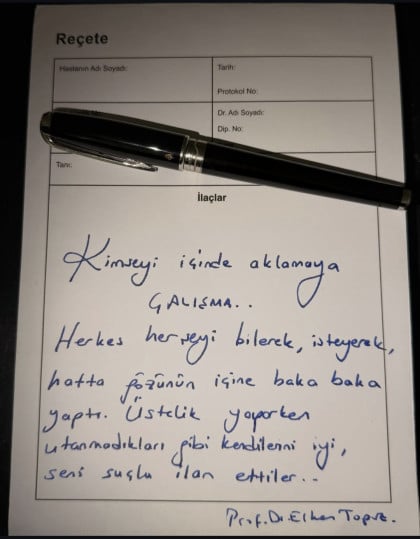 Reçete
Hastanın Adı Soyadı:
Tarih:
Protokol No:
No:
Dr. Adı Soyadı:
Dip. No:
Tanı:
İlaçlar
Kimseyi içinde aklamaya
ÇALIŞMA..
Herkes herşeyi bilerek, isteyerek,
hatta gözünün içine baka baka
yaptı. Üstelik yaparken
utanmadıkları gibi kendilerini iyi,
seni suçlu ilan ettiler..
Prof. Dr. Erkan Topuz.